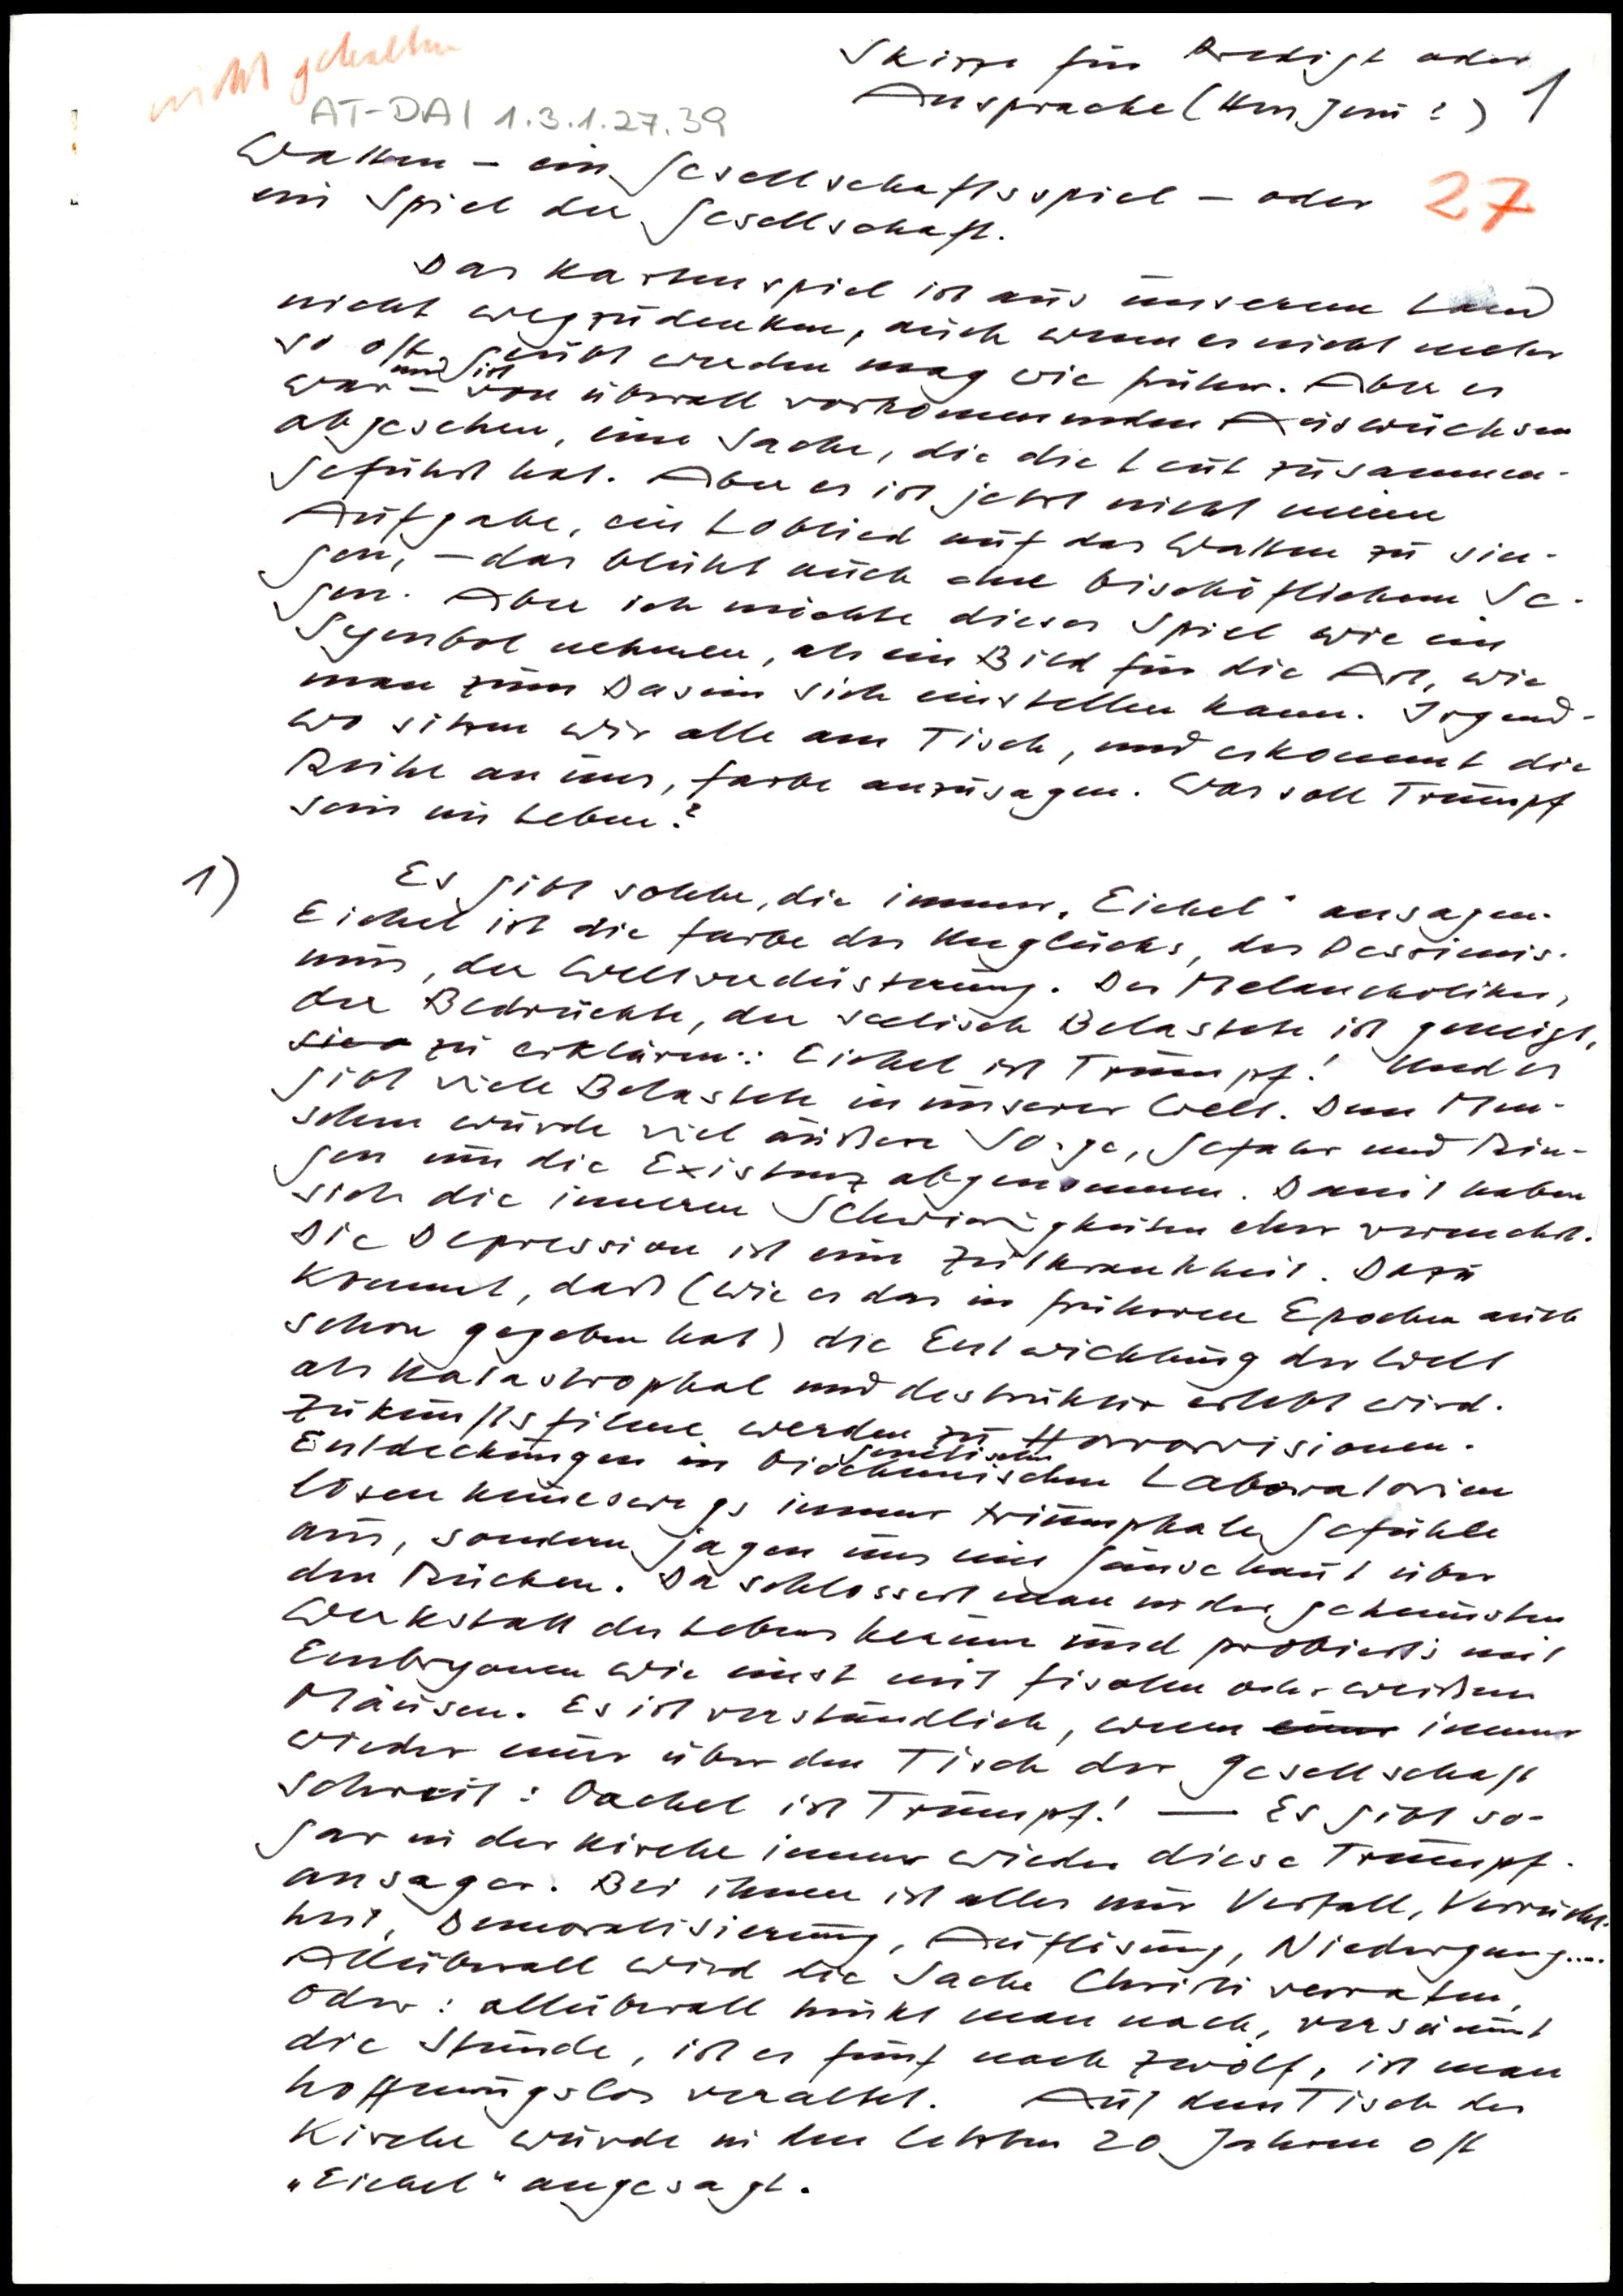 nicht gehalten
Skizze für Predigt oder
Ansprache (
1
AT-DAI 1.3.1.27.39
Watten - ein Gesellschaftsspiel - oder
ein Spiel der Gesellschaft.
27
Das Kartenspiel ist aus unserem Land
nicht wegzudenken, auch wenn es nicht mehr
so oft geübt werden mag wie früher. Aber es
war - und ist von überall vorkommenden Auswüchsen
abgesehen, eine Sache, die die Leut zusammen-
geführt hat. Aber es ist jetzt nicht meine
Aufgabe, ein Loblied auf das Watten zu sin-
gen, - das blüht auch ohne bischöflichen Se-
gen. Aber ich möchte dieses Spiel wie ein
Symbol nehmen, als ein Bild für die Art, wie
man zum Dasein sich einstellen kann. Irgend-
wo sitzen wir alle am Tisch, und es kommt die
Reihe an uns, Farbe anzusagen. Was soll Trumpf
sein im Leben?
1)
Es gibt solche, die immer "Eichel" ansagen.
Eichel ist die Farbe des Unglücks, des Pessimis-
mus, der Weltverdüsterung. Der Melancholiker,
der Bedrückte, der seelisch Belastete ist geneigt,
zu erklären: Eichel ist Trumpf! Und es
gibt viele Belastete in unserer Welt. Dem Men-
schen wurde viel äußere Sorge, Gefahr und Rin-
gen um die Existenz abgenommen. Damit haben
sich die inneren Schwierigkeiten eher vermehrt.
Die Depression ist eine Zeitkrankheit. Dazu
kommt, daß (wie es das in früheren Epochen auch
schon gegeben hat) die Entwicklung der Welt
als katastrophal und destruktiv erlebt wird.
Zukunftsfilme werden zu Horrorvisionen.
Entdeckungen in biochemischen genetischen Laboratorien
lösen keineswegs immer triumphale Gefühle
aus, sondern jagen uns eine Gänsehaut über
den Rücken. Da schlossert man in der geheimsten
Werkstatt des Lebens herum und probiert's mit
Embryonen wie einst mit Fischen oder weißen
Mäusen. Es ist verständlich, wenn immer
wieder einer über den Tisch der Gesellschaft
schreit: Oachel ist Trumpf! — Es gibt so-
gar in der Kirche immer wieder diese Trumpf-
ansager. Bei ihnen ist alles nur Verfall, Verrückt-
heit, Demoralisierung, Auflösung, Niedergang....
Allüberall wird die Sache Christi verraten,
oder: allüberall hinkt man nach, versäumt
die Stunde, ist es fünf nach zwölf, ist man
hoffnungslos veraltet. Auf dem Tisch der
Kirche wurde in den letzten 20 Jahren oft
"Eichel" angesagt.